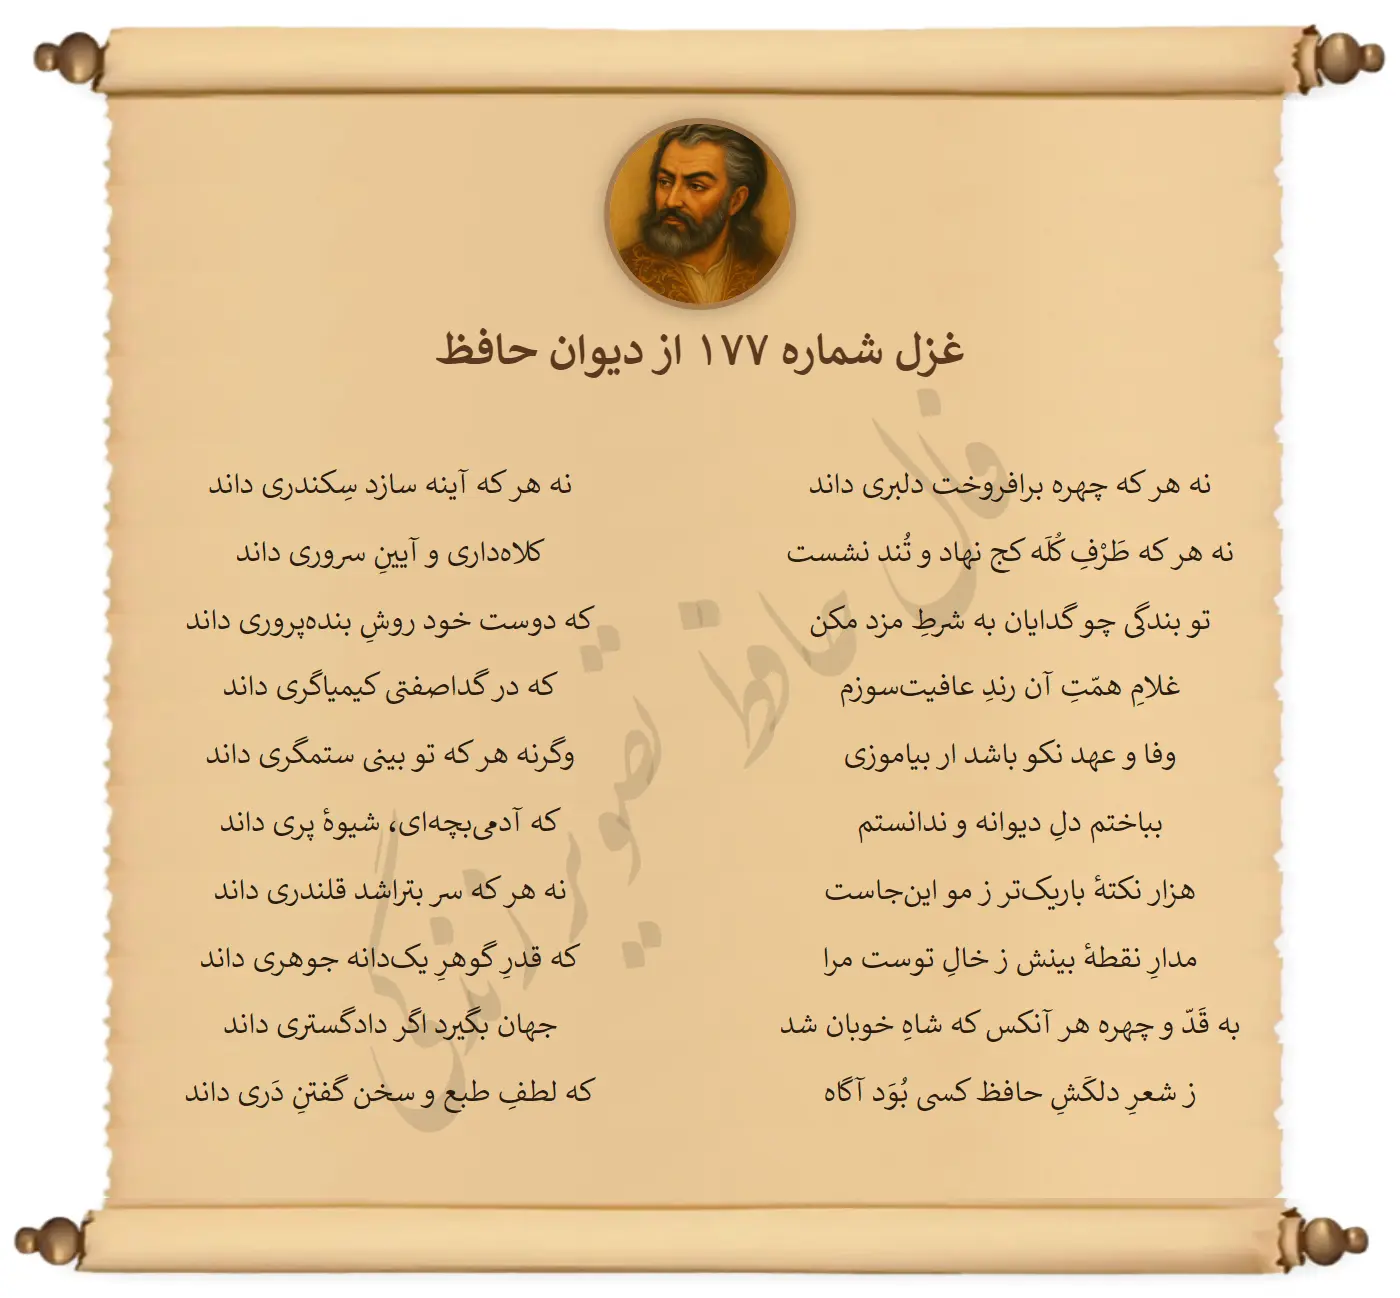 غزل شماره ۱۷۷ از دیوان حافظ
نه هر که چهره برافروخت دلبری داند
نه هر که آینه سازد سِکندری داند
نه هر که طَرْفِ کُلَه کج نهاد و تُند نشست
کلاه‌داری و آیینِ سروری داند
تو بندگی چو گدایان به شرطِ مزد مکن
که دوست خود روشِ بنده‌پروری داند
غلامِ همّتِ آن رندِ عافیت‌سوزم
که در گداصفتی کیمیاگری داند
وفا و عهد نکو باشد ار بیاموزی
وگرنه هر که تو بینی ستمگری داند
بباختم دلِ دیوانه و ندانستم
که آدمی‌بچه‌ای، شیوهٔ پری داند
هزار نکتهٔ باریک‌تر ز مو این‌جاست
نه هر که سر بتراشد قلندری داند
مدارِ نقطهٔ بینش ز خالِ توست مرا
که قدرِ گوهرِ یک‌دانه جوهری داند
به قَدّ و چهره هر آنکس که شاهِ خوبان شد
جهان بگیرد اگر دادگستری داند
ز شعرِ دلکَشِ حافظ کسی بُوَد آگاه
که لطفِ طبع و سخن گفتنِ دَری داند
فال حافظ تصویر زندگی